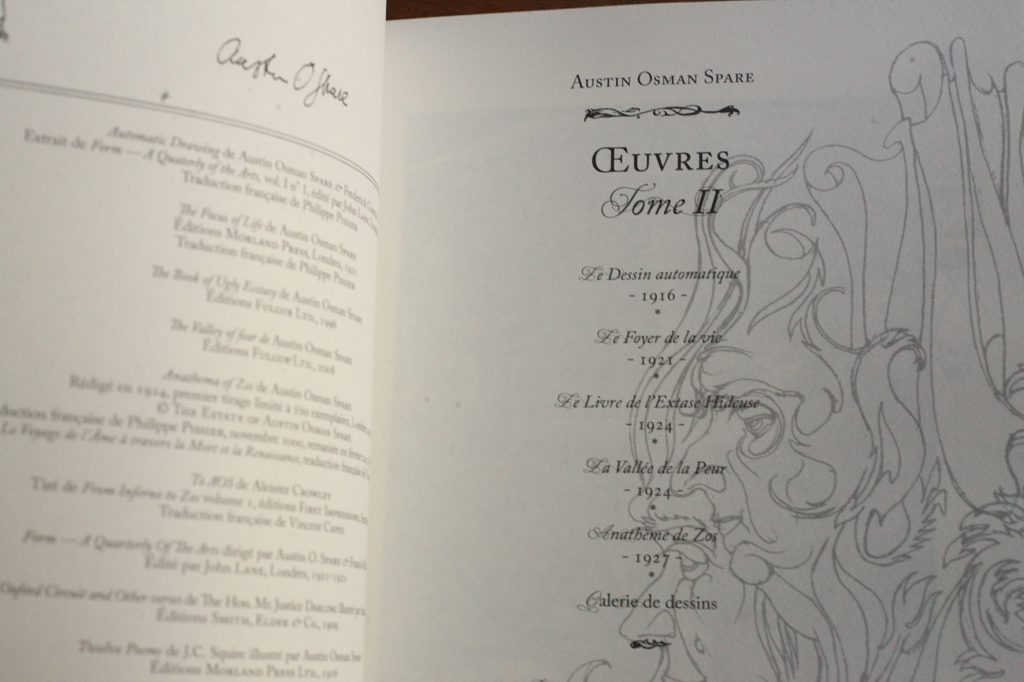 Austin O Spare
Automatic Drawing de Austin Osman Spare & Frederick
Extrait de Form — A Quaterly of the Arts, vol. I n° 1, édité par John Lane,
Traduction française de Philippe Pissier
The Focus of Life de Austin Osman Spare
Éditions Morland Press, Londres, 1921
Traduction française de Philippe Pissier
The Book of Ugly Ecstasy de Austin Osman Spare
Éditions Fulgur Ltd., 1996
The Valley of fear de Austin Osman Spare
Éditions Fulgur Ltd., 2008
Anathema of Zos de Austin Osman Spare
Rédigé en 1924, premier tirage limité à 100 exemplaires,
© The Estate of Austin Osman Spare
française de Philippe Pissier, novembre 2000,
Le Voyage de l'Âme à travers la Mort et la Renaissance, traduction française
To AOS de Aleister Crowley
Tiré de From Inferno to Zos volume 1, éditions First Impressions,
Traduction française de Vincent Capes
Form — A Quarterly Of The Arts dirigé par Austin O. Spare &
Édité par John Lane, Londres,
Oxford Circuit and Other verses de The Hon. Mr. Justice Darling
Éditions Smith, Elder & Co, 1909
Twelve Poems de J.C. Squire illustré par Austin Osman Spare
Éditions Morland Press Ltd, 1916
Austin Osman Spare
Œuvres
Tome II
Le Dessin automatique
- 1916 -
*
Le Foyer de la vie
- 1921 -
*
Le Livre de l'Extase Hideuse
- 1924 -
*
La Vallée de la Peur
- 1924 -
*
Anathème de Zos
- 1927 -
*
Galerie de dessins